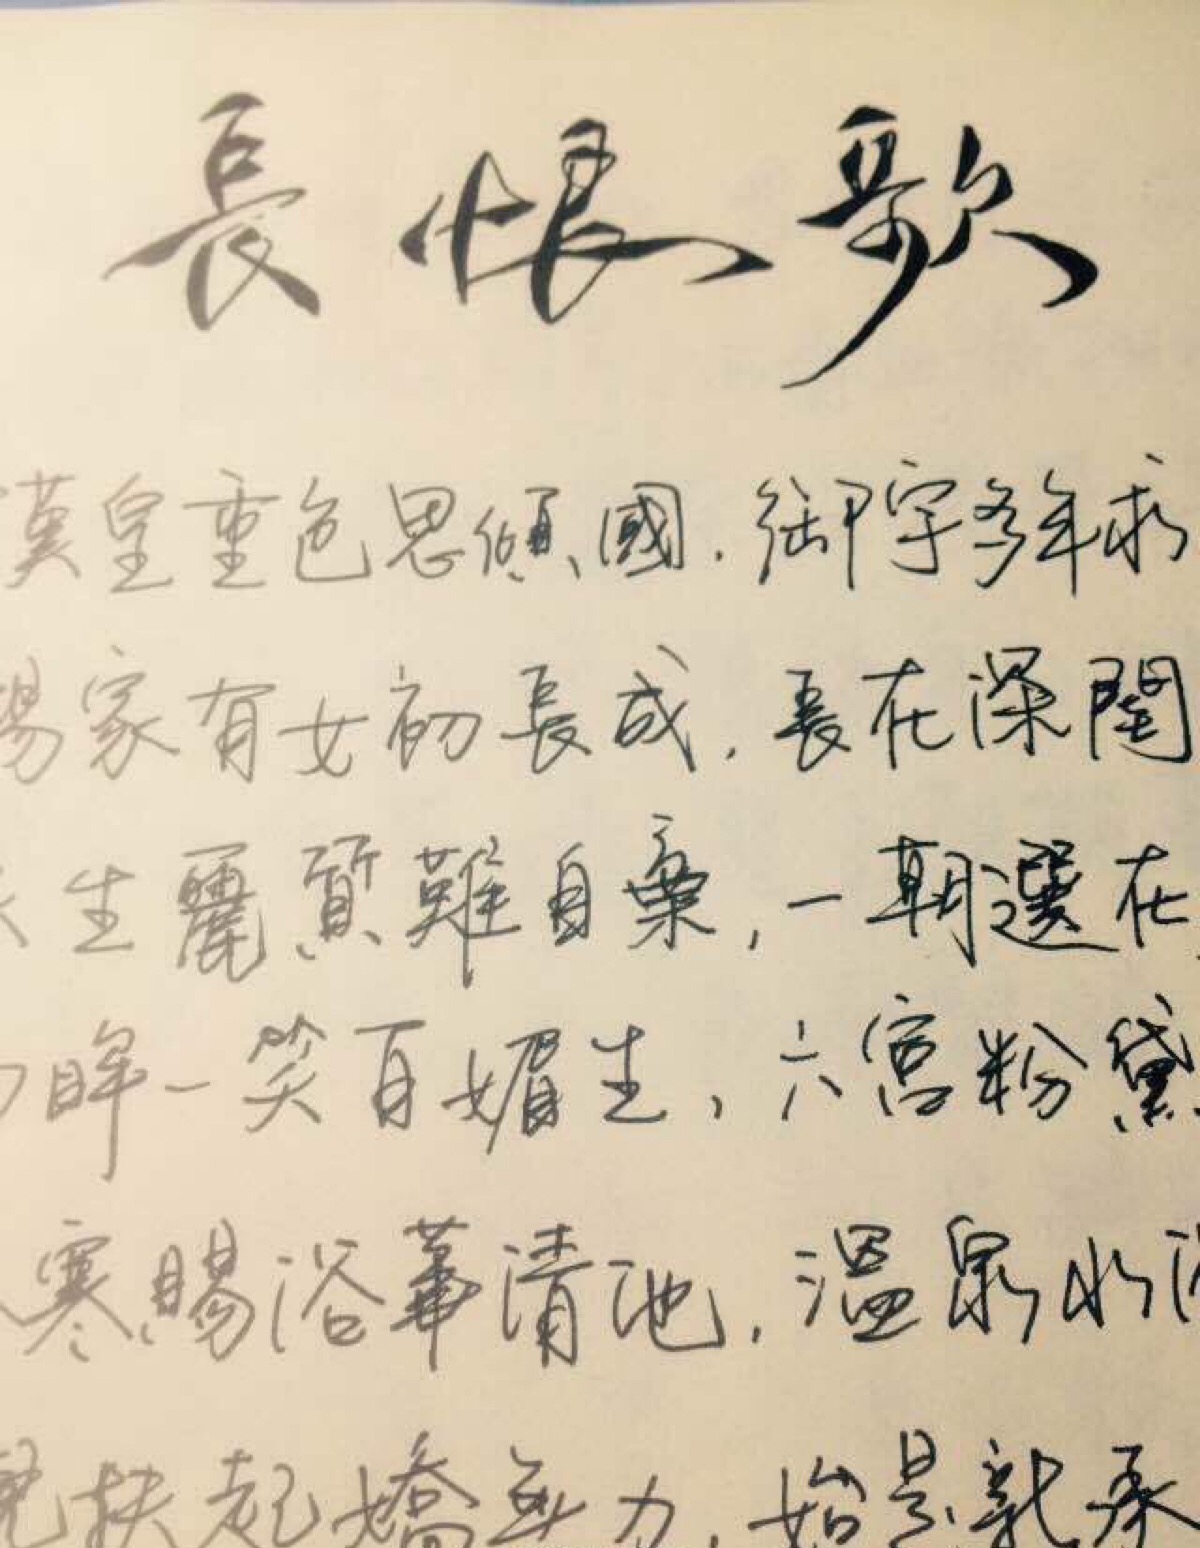 長恨歌
漢皇重色思傾國．御宇多年求
楊家有女初長成，長在深閨
生麗質難自棄，一朝選在
眸一笑百媚生，六宮粉黛
寒賜浴華清池，溫泉水滑
兒扶起嬌無力，始是新承